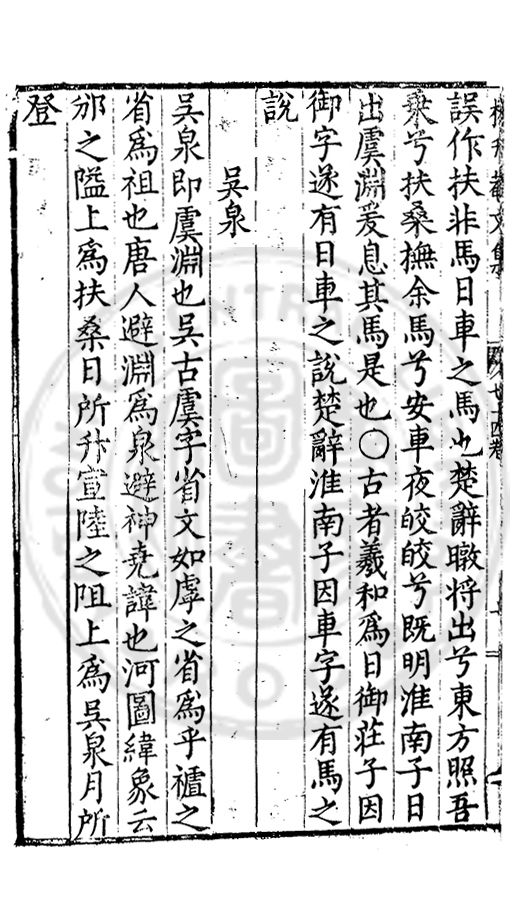 誤作扶非馬日車之馬也楚辭暾將出兮東方照吾
乗兮扶桑撫余馬兮安車夜皎皎兮既明淮南子日
出虞淵爰息其馬是也〇古者羲和爲日御莊子因
御字遂有日車之說楚辭淮南子因車字遂有馬之
說
吳泉
吳泉即虞淵也吳古虞字省文如虖之省爲乎之
省爲祖也唐人避淵爲泉避神堯諱也河圖緯象云
邠之隘上爲扶桑日所升宣陸之阻上爲吳泉月所
登